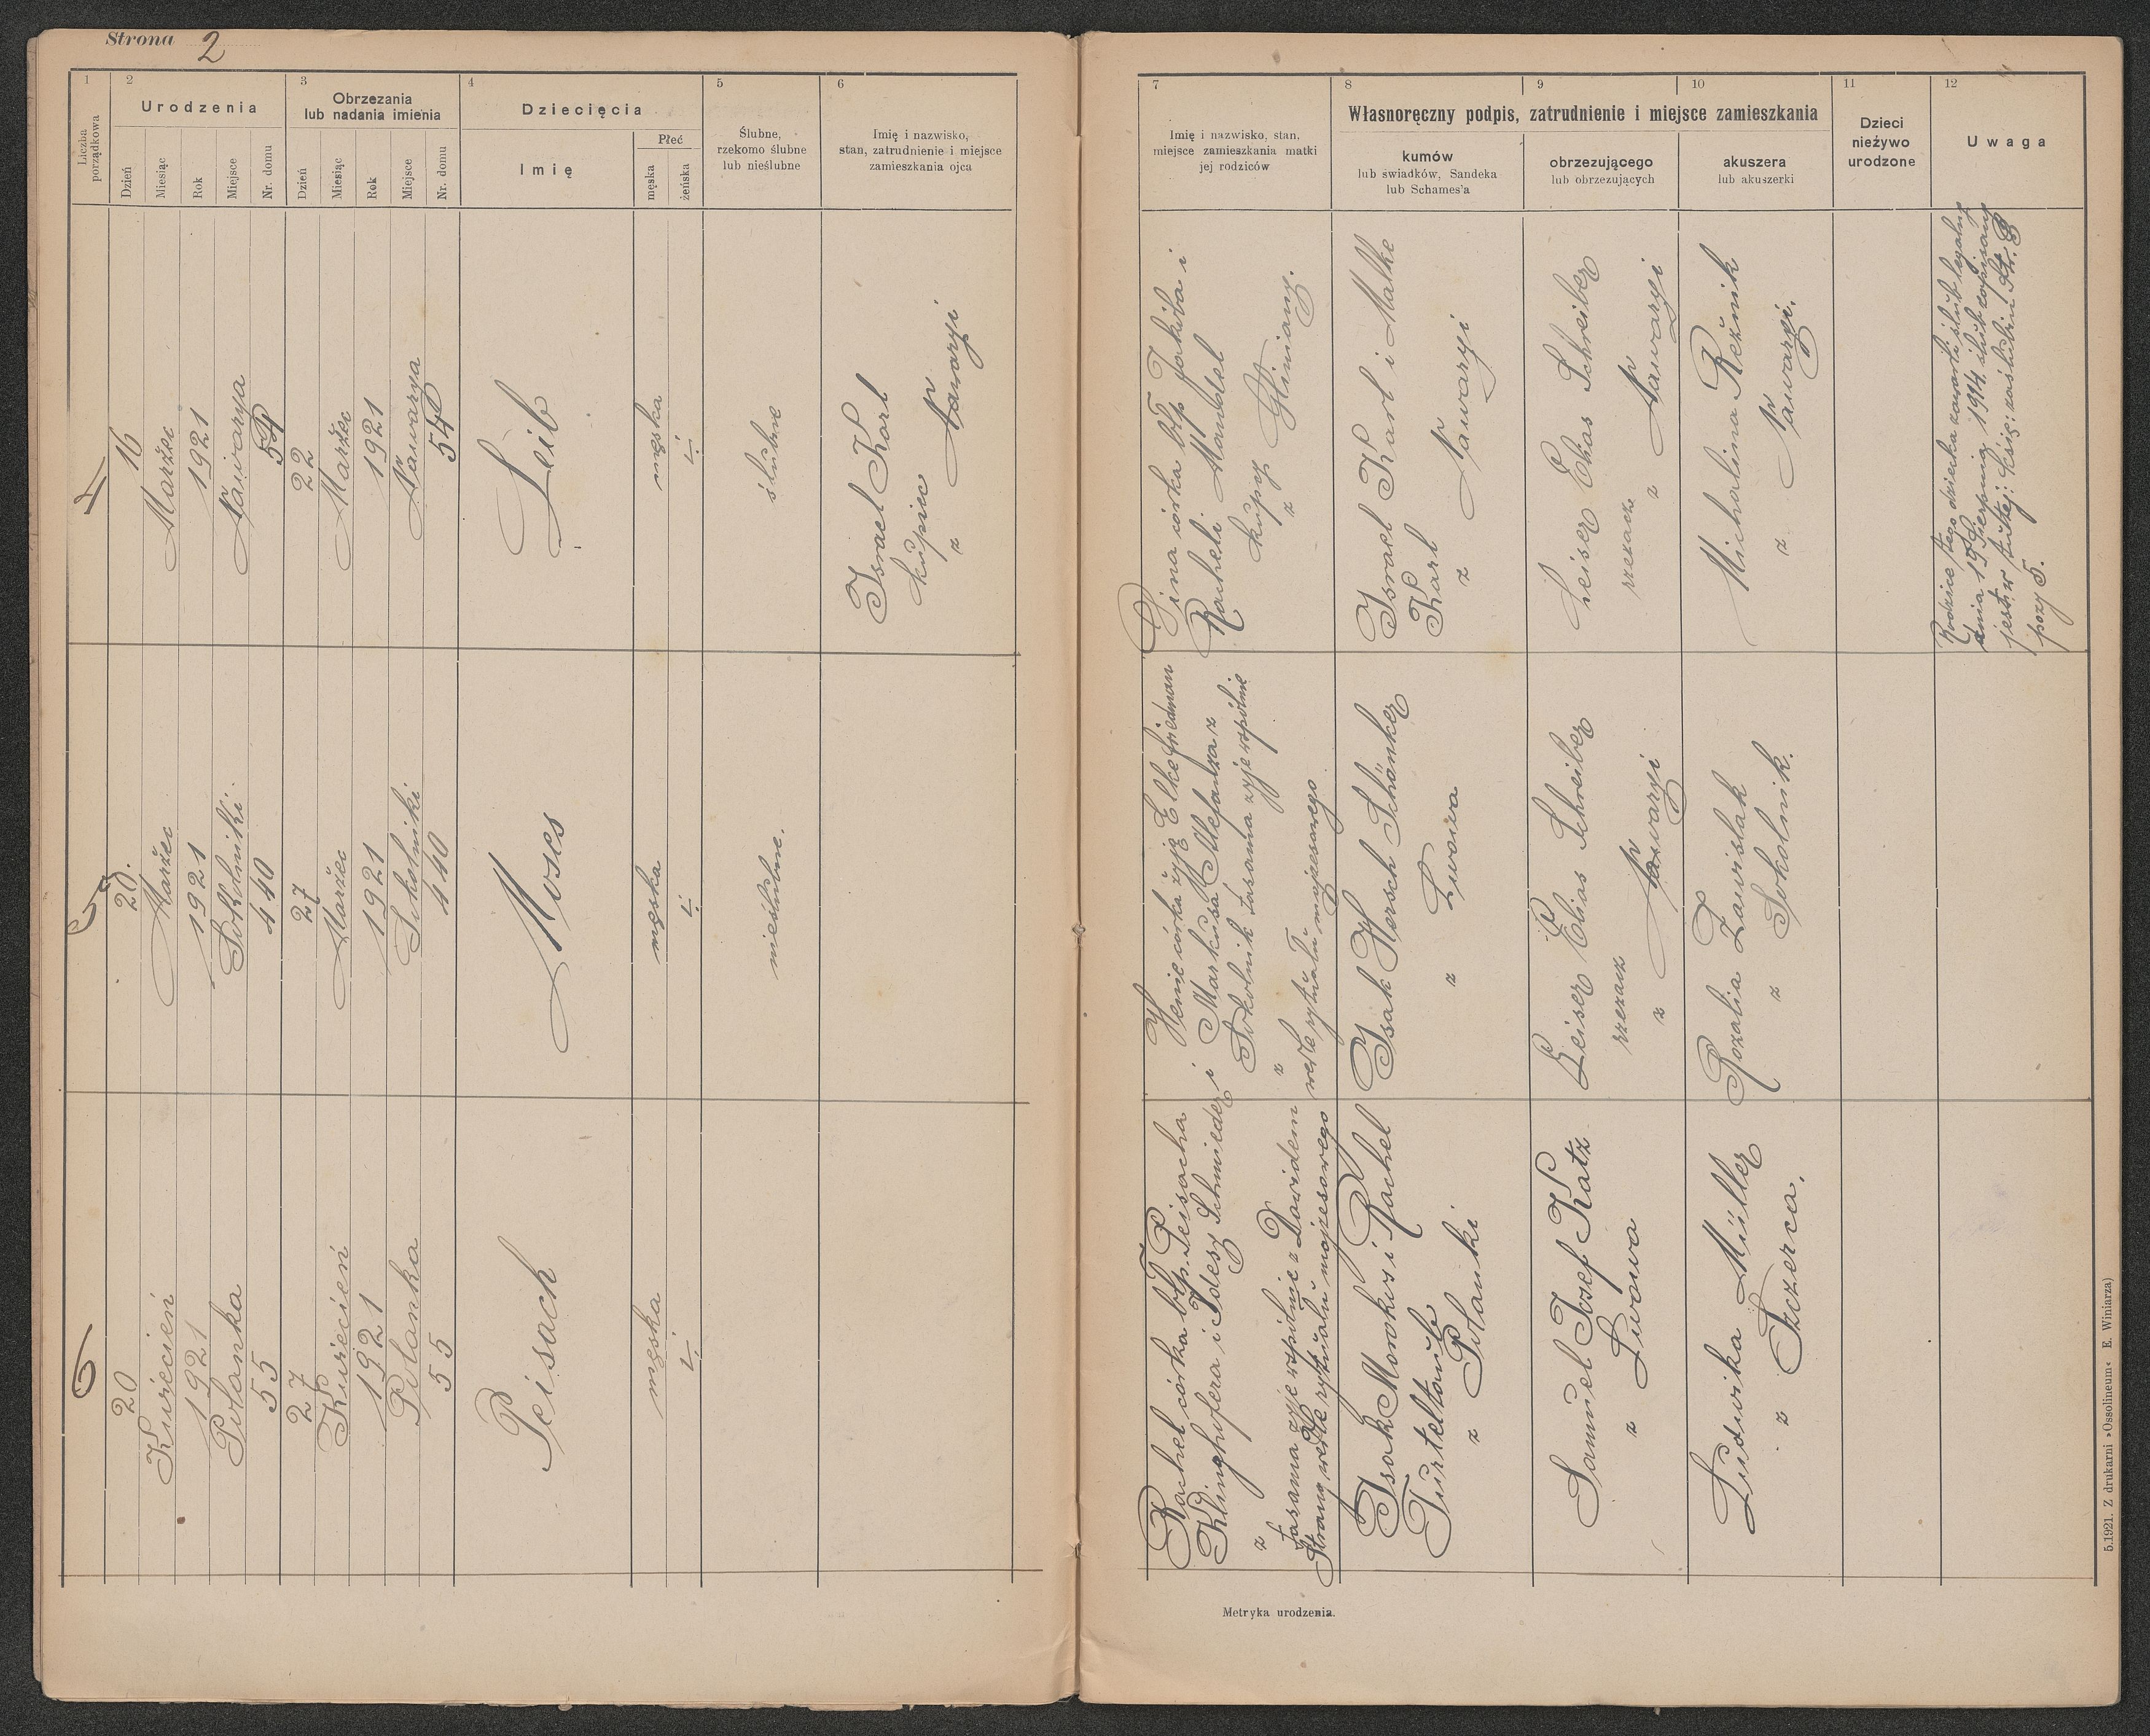 Strona 2
1
2
3
4
5
6
Liczba porządkowa
Urodzenia
Dzień
Miesiąc
Rok
Miejsce
Nr. domu
Obrzezania
lub nadania imienia
Dzień
Miesiąc
Rok
Miejsce
Nr. domu
Dziecięcia
Imię
Płeć
męska
żeńska
Ślubne,
rzekomo ślubne
lub nieślubne
Imię i nazwisko,
stan, zatrudnienie i miejsce
zamieszkania ojca
7
8
9
10
11
12
Imię i nazwisko, stan,
miejsce zamieszkania matki
jej rodziców
Własnoręczny podpis, zatrudnienie i miejsce zamieszkania
kumów
lub świadków, Sandeka
lub Schames'a
obrzezującego
lub obrzezujących
akuszera
lub akuszerki
Dzieci
nieżywo
urodzone
Uwaga
4
16
Maržec
1921
Nawarya
54
22
Maržec
1921
Nawarya
54
Leib
męska
ślubne
Israel Karl
kupiec
z Nawaryi
Dina córka błp Jakóba i
Racheli Mandel
kupcy
z Gliniany.
Israel Karl i Malke
Karl
z Nawaryi
Leiser Elias Schreiber
rzezacz
z Nawaryi
Michalina Režnik
z Nawaryi.
Rodzice tego dziecka zawarli ślub legalny
dnia 19 Sierpnia 1914, ślub zapisany
jest w tutej: księ: zaślubin Str. 8
pozy 5.
5
20.
Maržec
1921
Sokolniki
440
27
Maržec
1921
Sokolniki
440
Moses
męska
nieślubne.
Henie córka żyją Elke Friedman
i Markusa Mefanza z
Sokolnik tasama żyje wspólnie
z
wedle rytuału mojżeszowego
Isak Hersch Schönker
z Lwowa
Leiser Elias Schreiber
rzezacz
z Nawaryi
Rozalia Zawislak
z Sokolnik.
6
20
Kwiecień
1921
Polanka
55
27
Kwiecień
1921
Polanka
55
Peisach
męska
Rachel córka błp. Peisacha
Klinghofera i Jolesz Schmieder
z
tasama żyje wspólnie z Dawidem
Strang wedle rytuału mojżeszowego
Isak Morokus i Rachel
Turteltaub
z Polanki
Samuel Josef Katz
z Lwowa
Ludwika Müller
z Szczerca.
Metryka urodzenia.
5.1921. Z drukarni »Ossolineum« E. Winiarza)